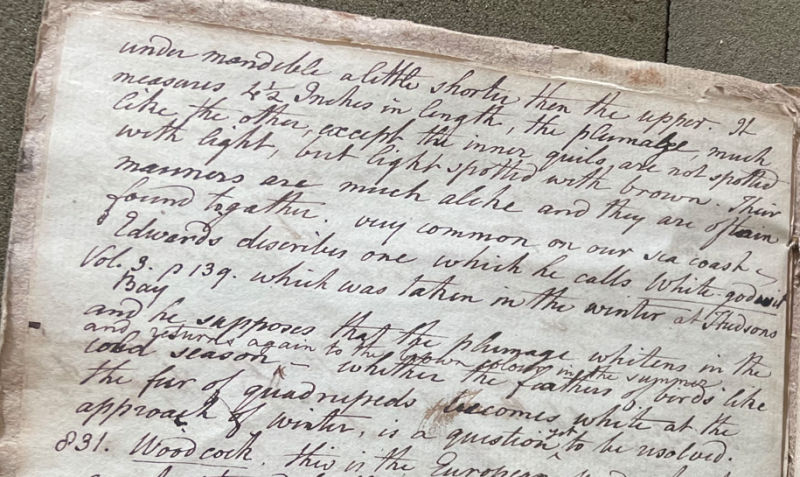 under mandible a little shorter then the upper. It
measures 4½ Inches in length, the plumage, much
like the other, except the inner quils, are not spotted
with light, but light spotted with brown. Their
manners are much alike and they are oftain
found togather. very common on our sea coast
Edwards describes one which he calls White godwit
Vol. 3. p 139. which was taken in the winter at Hudsons
Bay
and he supposes that the plumage whitens in the
and returns again to the brown colour in the summer.
cold season – whether the feathers of birds like
the fur of quadrupeds becomes white at the
approach of winter, is a question yet to be resolved.
831. Woodcock. this is the European